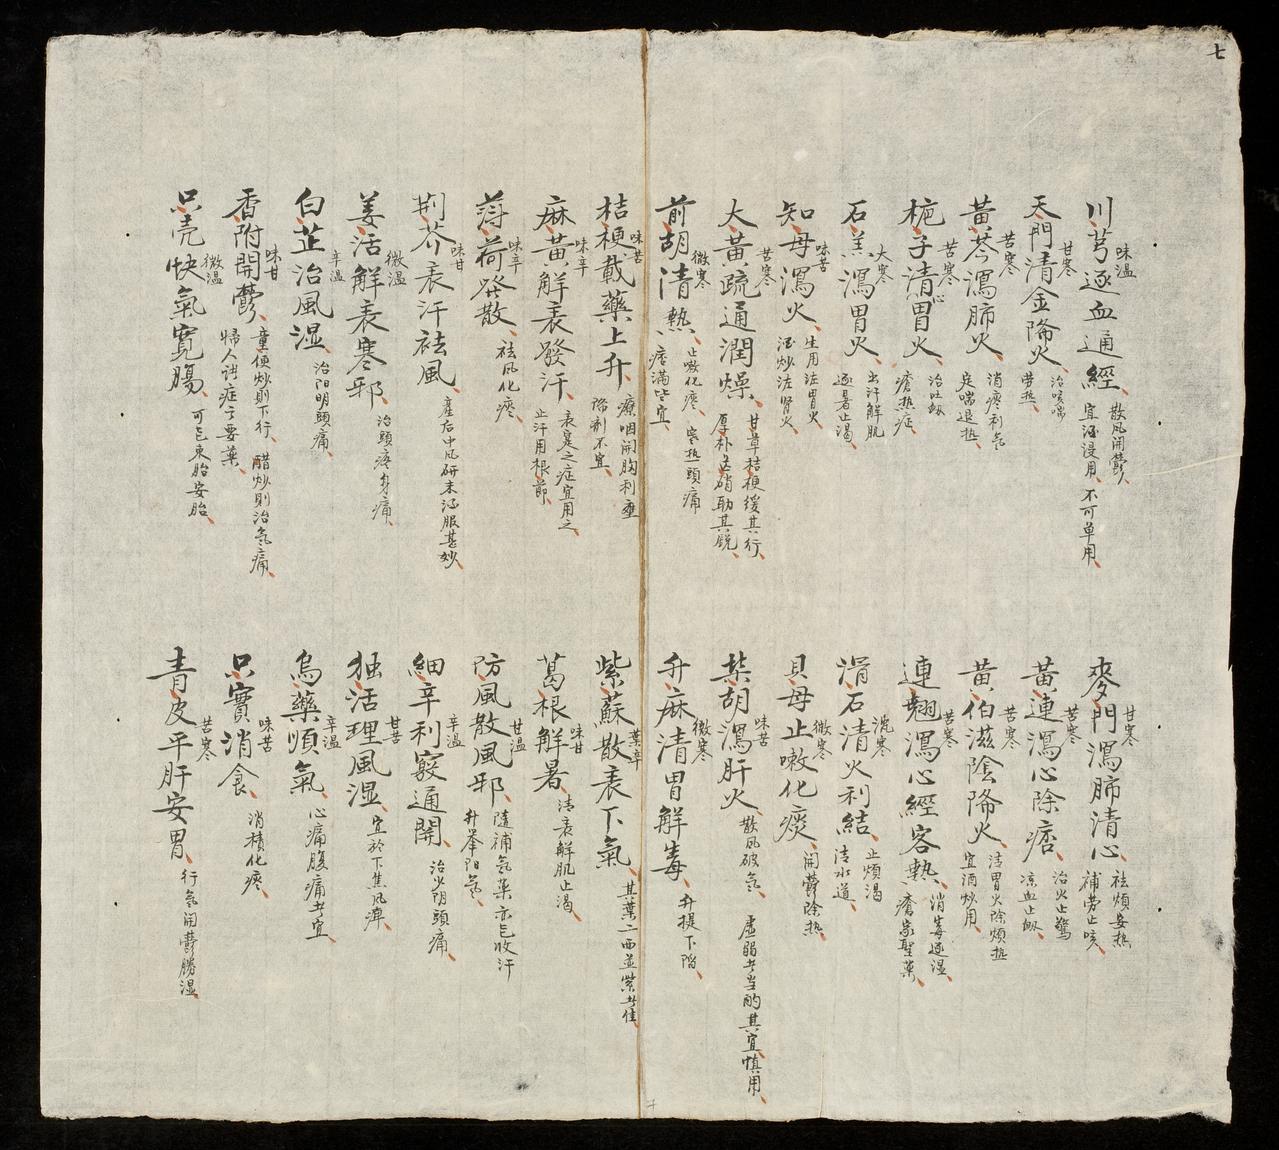 七
川芎逐血通經 味温 散風開鬱 宜酒浸用、不可单用
麥門瀉肺清心 甘寒 祛煩安热 補劳止咳
天門清金降火 甘寒 治咳喘 劳热
黃連瀉心除痞 苦寒 治火止驚 凉血止衄
黃芩瀉肺火 苦寒 消痰利氣 定喘退热
黃伯滋陰降火 苦寒 清胃火除煩热 宜酒炒用
梔子清胃火 苦寒 治吐衄 瘡热症
連翹瀉心經客熱 苦寒 消毒逐湿 瘡家聖藥
石羔瀉胃火 大寒 出汗解肌 逐暑止渴
滑石清火利結 沈寒 止煩渴 清水道
知母瀉火 味苦 生用治胃火 酒炒治腎火
貝母止嗽化痰 微寒 開鬱除热
大黃疏通潤燥 苦寒 甘草桔梗緩其行 厚朴芒硝助其銳
柴胡瀉肝火 味苦 散風破氣 虛弱者当酌其宜慎用
前胡清熱 微寒 止嗽化痰、寒热頭痛 痞滿皆宜
升麻清胃解毒 微寒 升提下陷
桔梗載藥上升 味苦 療咽開胸利壅 降剤不宜
紫蘇散表下氣 葉辛 其葉二面並紫者佳
麻黃解表發汗 味辛 表寔之症宜用之 止汗用根節
葛根解暑 味甘 清表解肌止渴
薄荷發散 味辛 祛風化痰
防風散風邪 甘温 隨補氣藥亦已收汗 升举阳氣
荆芥表汗祛風 味甘 產后中風研末酒服甚妙
細辛利竅通開 辛温 治少阴頭痛
姜活解表寒邪 微温 治頭疼身痛
独活理風湿 甘苦 宜於下焦風痹
白芷治風湿 辛温 治阳明頭痛
烏藥順氣 辛温 心痛腹痛者宜
香附開鬱 味甘 童便炒則下行、醋炒則治氣痛 婦人諸症之要藥
只實消食 味苦 消積化痰
只壳快氣寬腸 微温 可已束胎安胎
青皮平肝安胃 苦寒 行氣開鬱勝湿